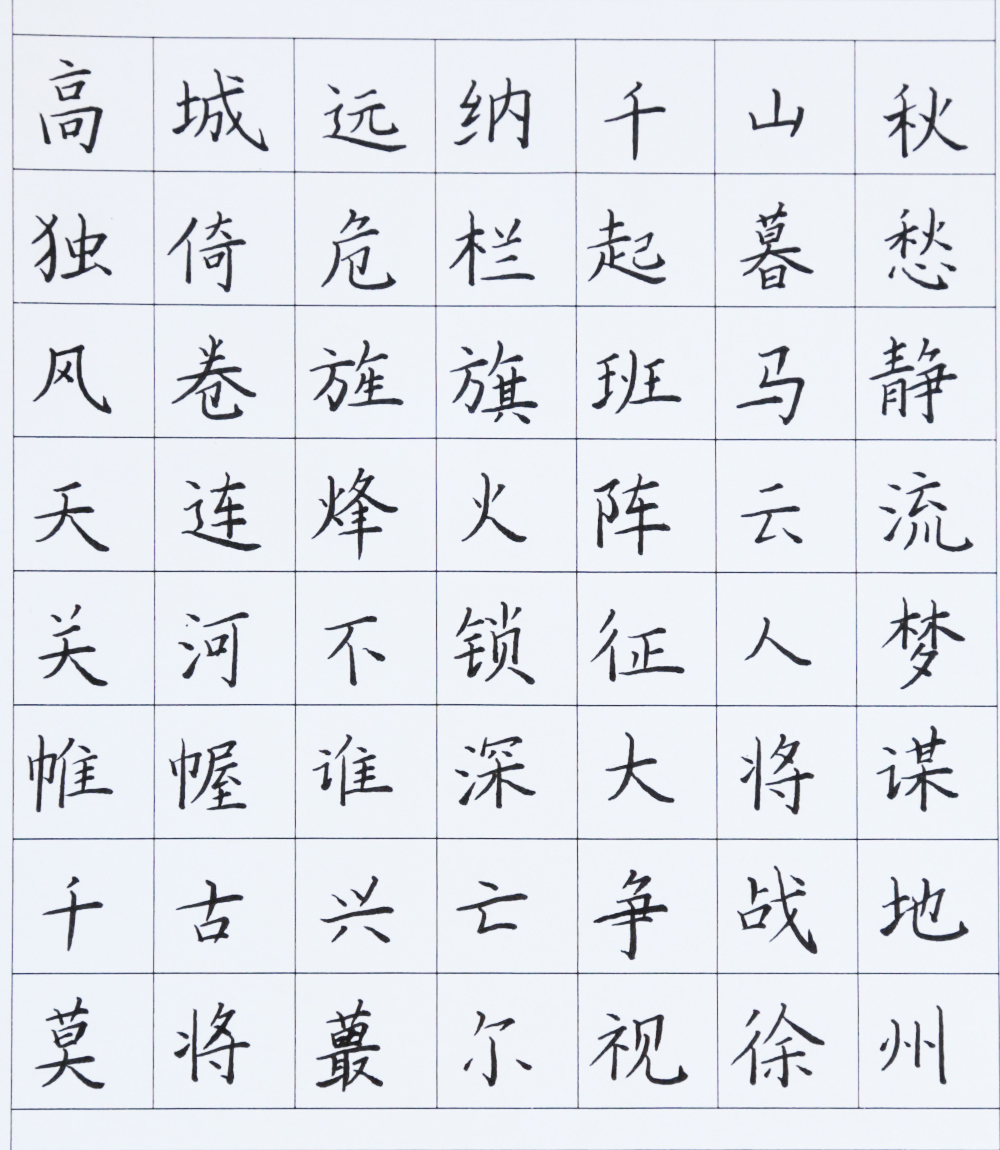 高城远纳千山秋
独倚危栏起暮愁
风卷旌旗班马静
天连烽火阵云流
关河不锁征人梦
帷幄谁深大将谋
千古兴亡争战地
莫将蕞尔视徐州